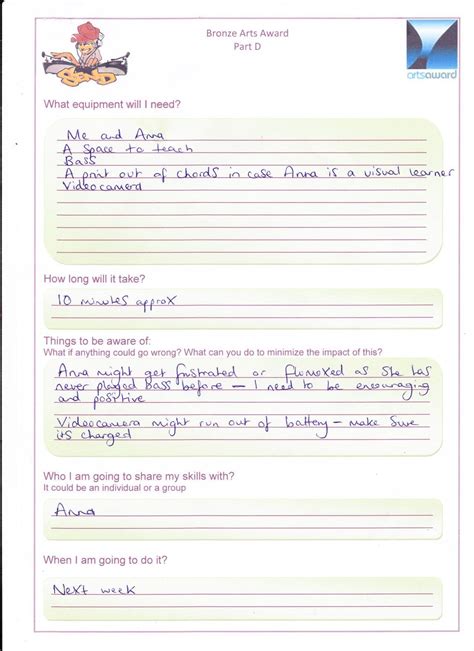 Bronze Arts Award
Part D
artsaward
What equipment will I need?
Me and Anna
A space to teach
Bass
A print out of chords in case Anna is a visual learner
Videocamera
How long will it take?
10 minutes approx
Things to be aware of:
What if anything could go wrong? What can you do to minimize the impact of this?
Anna might get frustrated or flumoxed as she has
never played bass before – I need to be encouraging
and positive
Videocamera might run out of battery – make sure
its charged
Who I am going to share my skills with?
It could be an individual or a group
Anna
When I am going to do it?
Next week